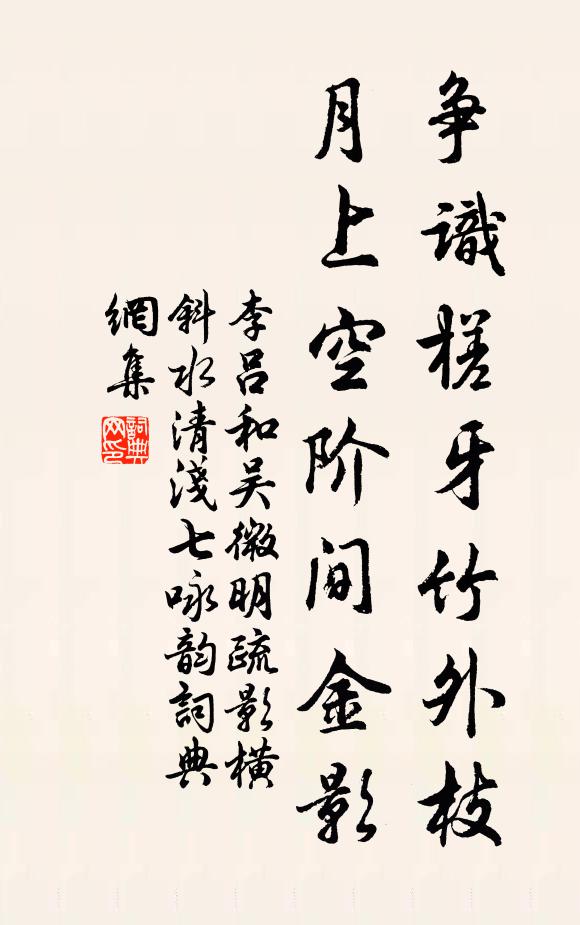 争識槎牙竹外枝
月上空阶间金影
李吕和吴微明疏影橫
斜水清淺七咏韵詞典
網集
詞典
网印